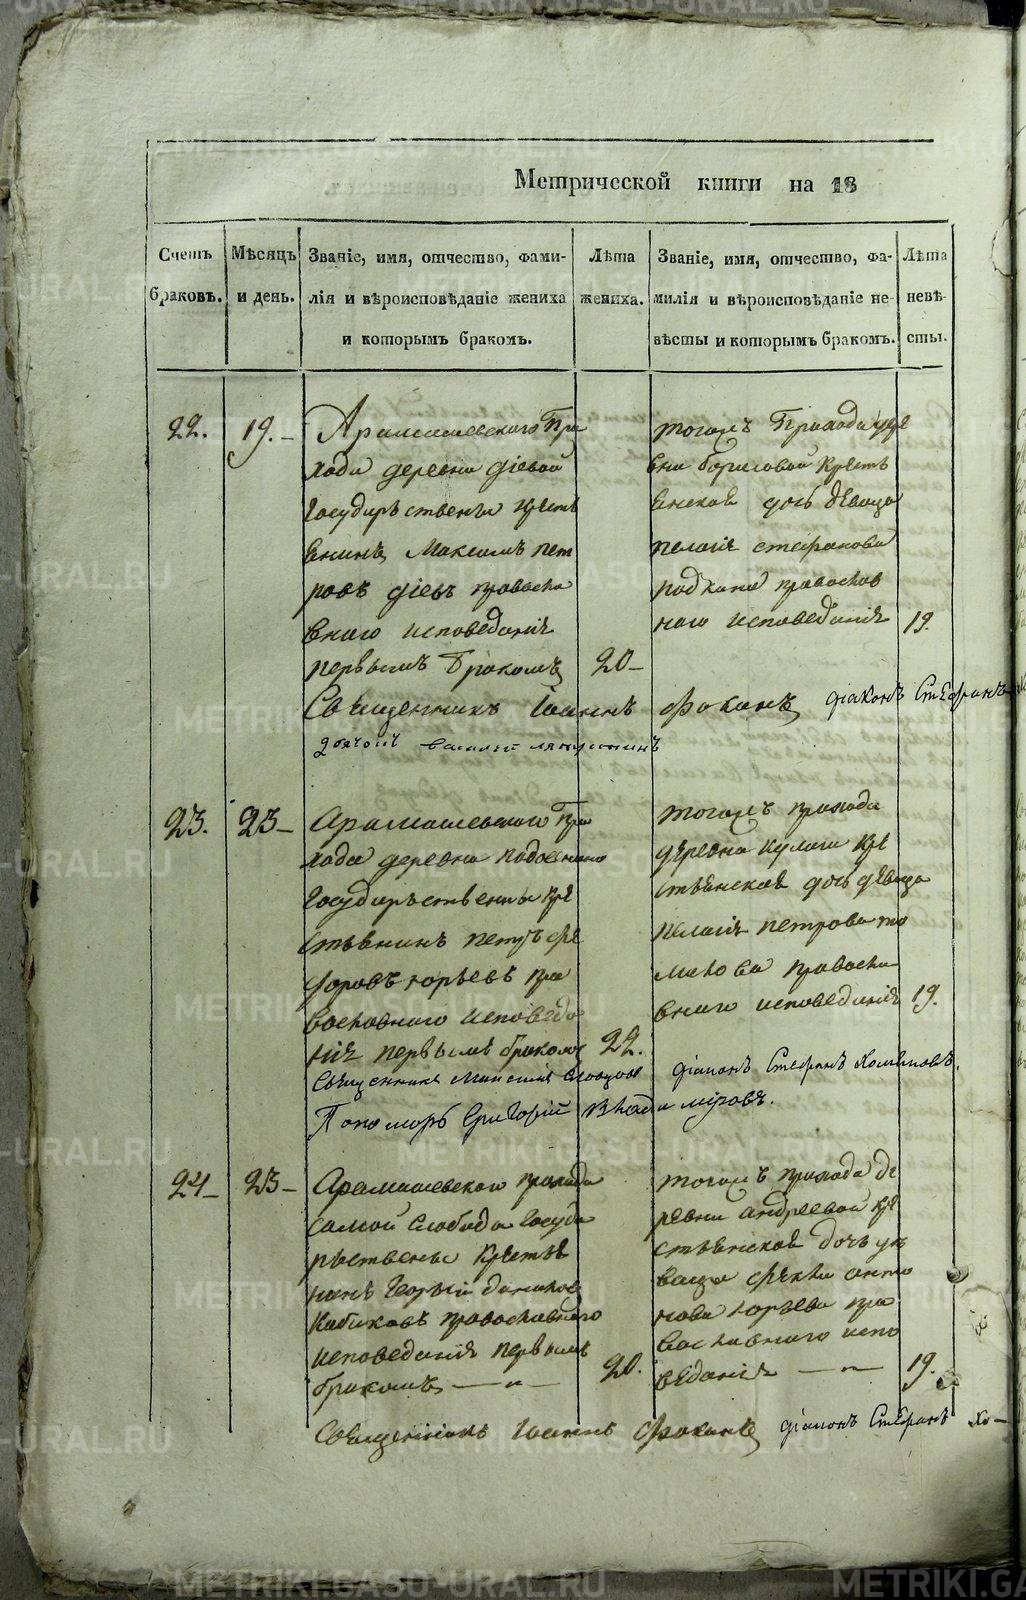 Метрической книги на 18
Счетъ браковъ.
Мѣсяцъ и день.
Званіе, имя, отчество, фами-
лія и вѣроисповѣданіе жениха
и которымъ бракомъ.
Лѣта жениха.
Званіе, имя, отчество, фа-
милія и вѣроисповѣданіе не-
вѣсты и которымъ бракомъ.
Лѣта невѣ-
сты.
22.
19.
Арамашевского При
хода деревни Діевой
государственны кресть
енинъ Максимъ Пет
ровъ Діевъ православ
внаго исповеданія
первымъ бракомъ
20
тогожъ Прихода дере
вни Борисовой кресть
енская дочь девица
Пелагія Стефанова
православ
наго исповеданія
19.
Священникъ Іоаннъ Фокинъ діаконъ Стефанъ
дьячокъ Василий
23.
23
Арамашевскаго При
хода деревни
государственны кре
стьенинъ Петръ Фе
доровъ Юрьевъ пра
вославнаго исповеда
нія первымъ бракомъ
22.
тогожъ прихода
деревни Кулиги кре
стьенская дочь девица
Пелагія Петрова То
милова правосла
внаго исповеданія
19.
Священникъ Максимъ Словцовъ діаконъ Стефанъ Хомяковъ.
Пономарь Григорій Владиміровъ.
24
23
Арамашевскаго прихода
самой слободы госуда
рственны крестье
нинъ Георгій Данилов
Кабаковъ православнаго
исповеданія первымъ
бракомъ
20.
тогожъ прихода де
ревни Андреевой кре
стьенская дочь де
вица Фекла Анто
нова Юрьева пра
вославнаго испо
веданія
19.
Священникъ Іоаннъ Фокинъ діаконъ Стефанъ Хо-
METRIKI.GASO-URAL.RU